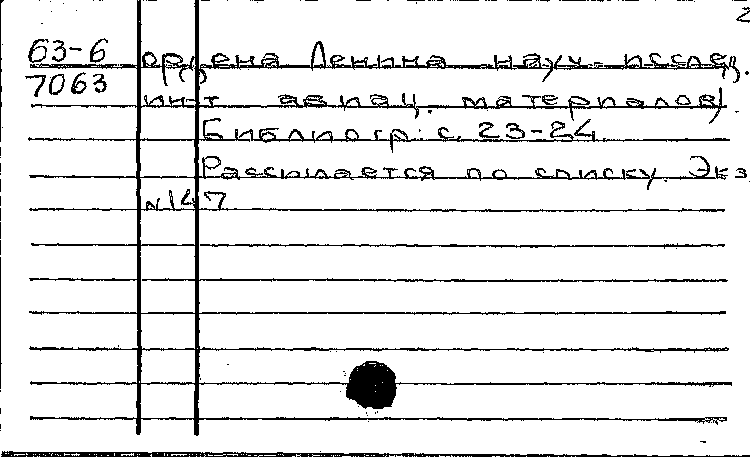 2
63-6 ордена Ленина науч.-исслед.
7063 ин-т авиац. материалов).
Библиогр.: с. 23-24.
Рассылается по списку. Экз
№147